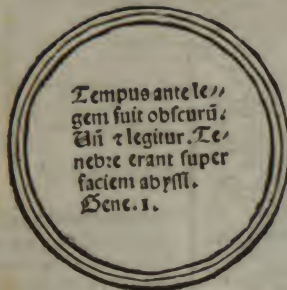 Tempus ante le⸗
gem fuit obſcurū.
Uñ ⁊ legitur. Te⸗
nebre erant ſuper
faciem abyſſi.
Gene. 1.